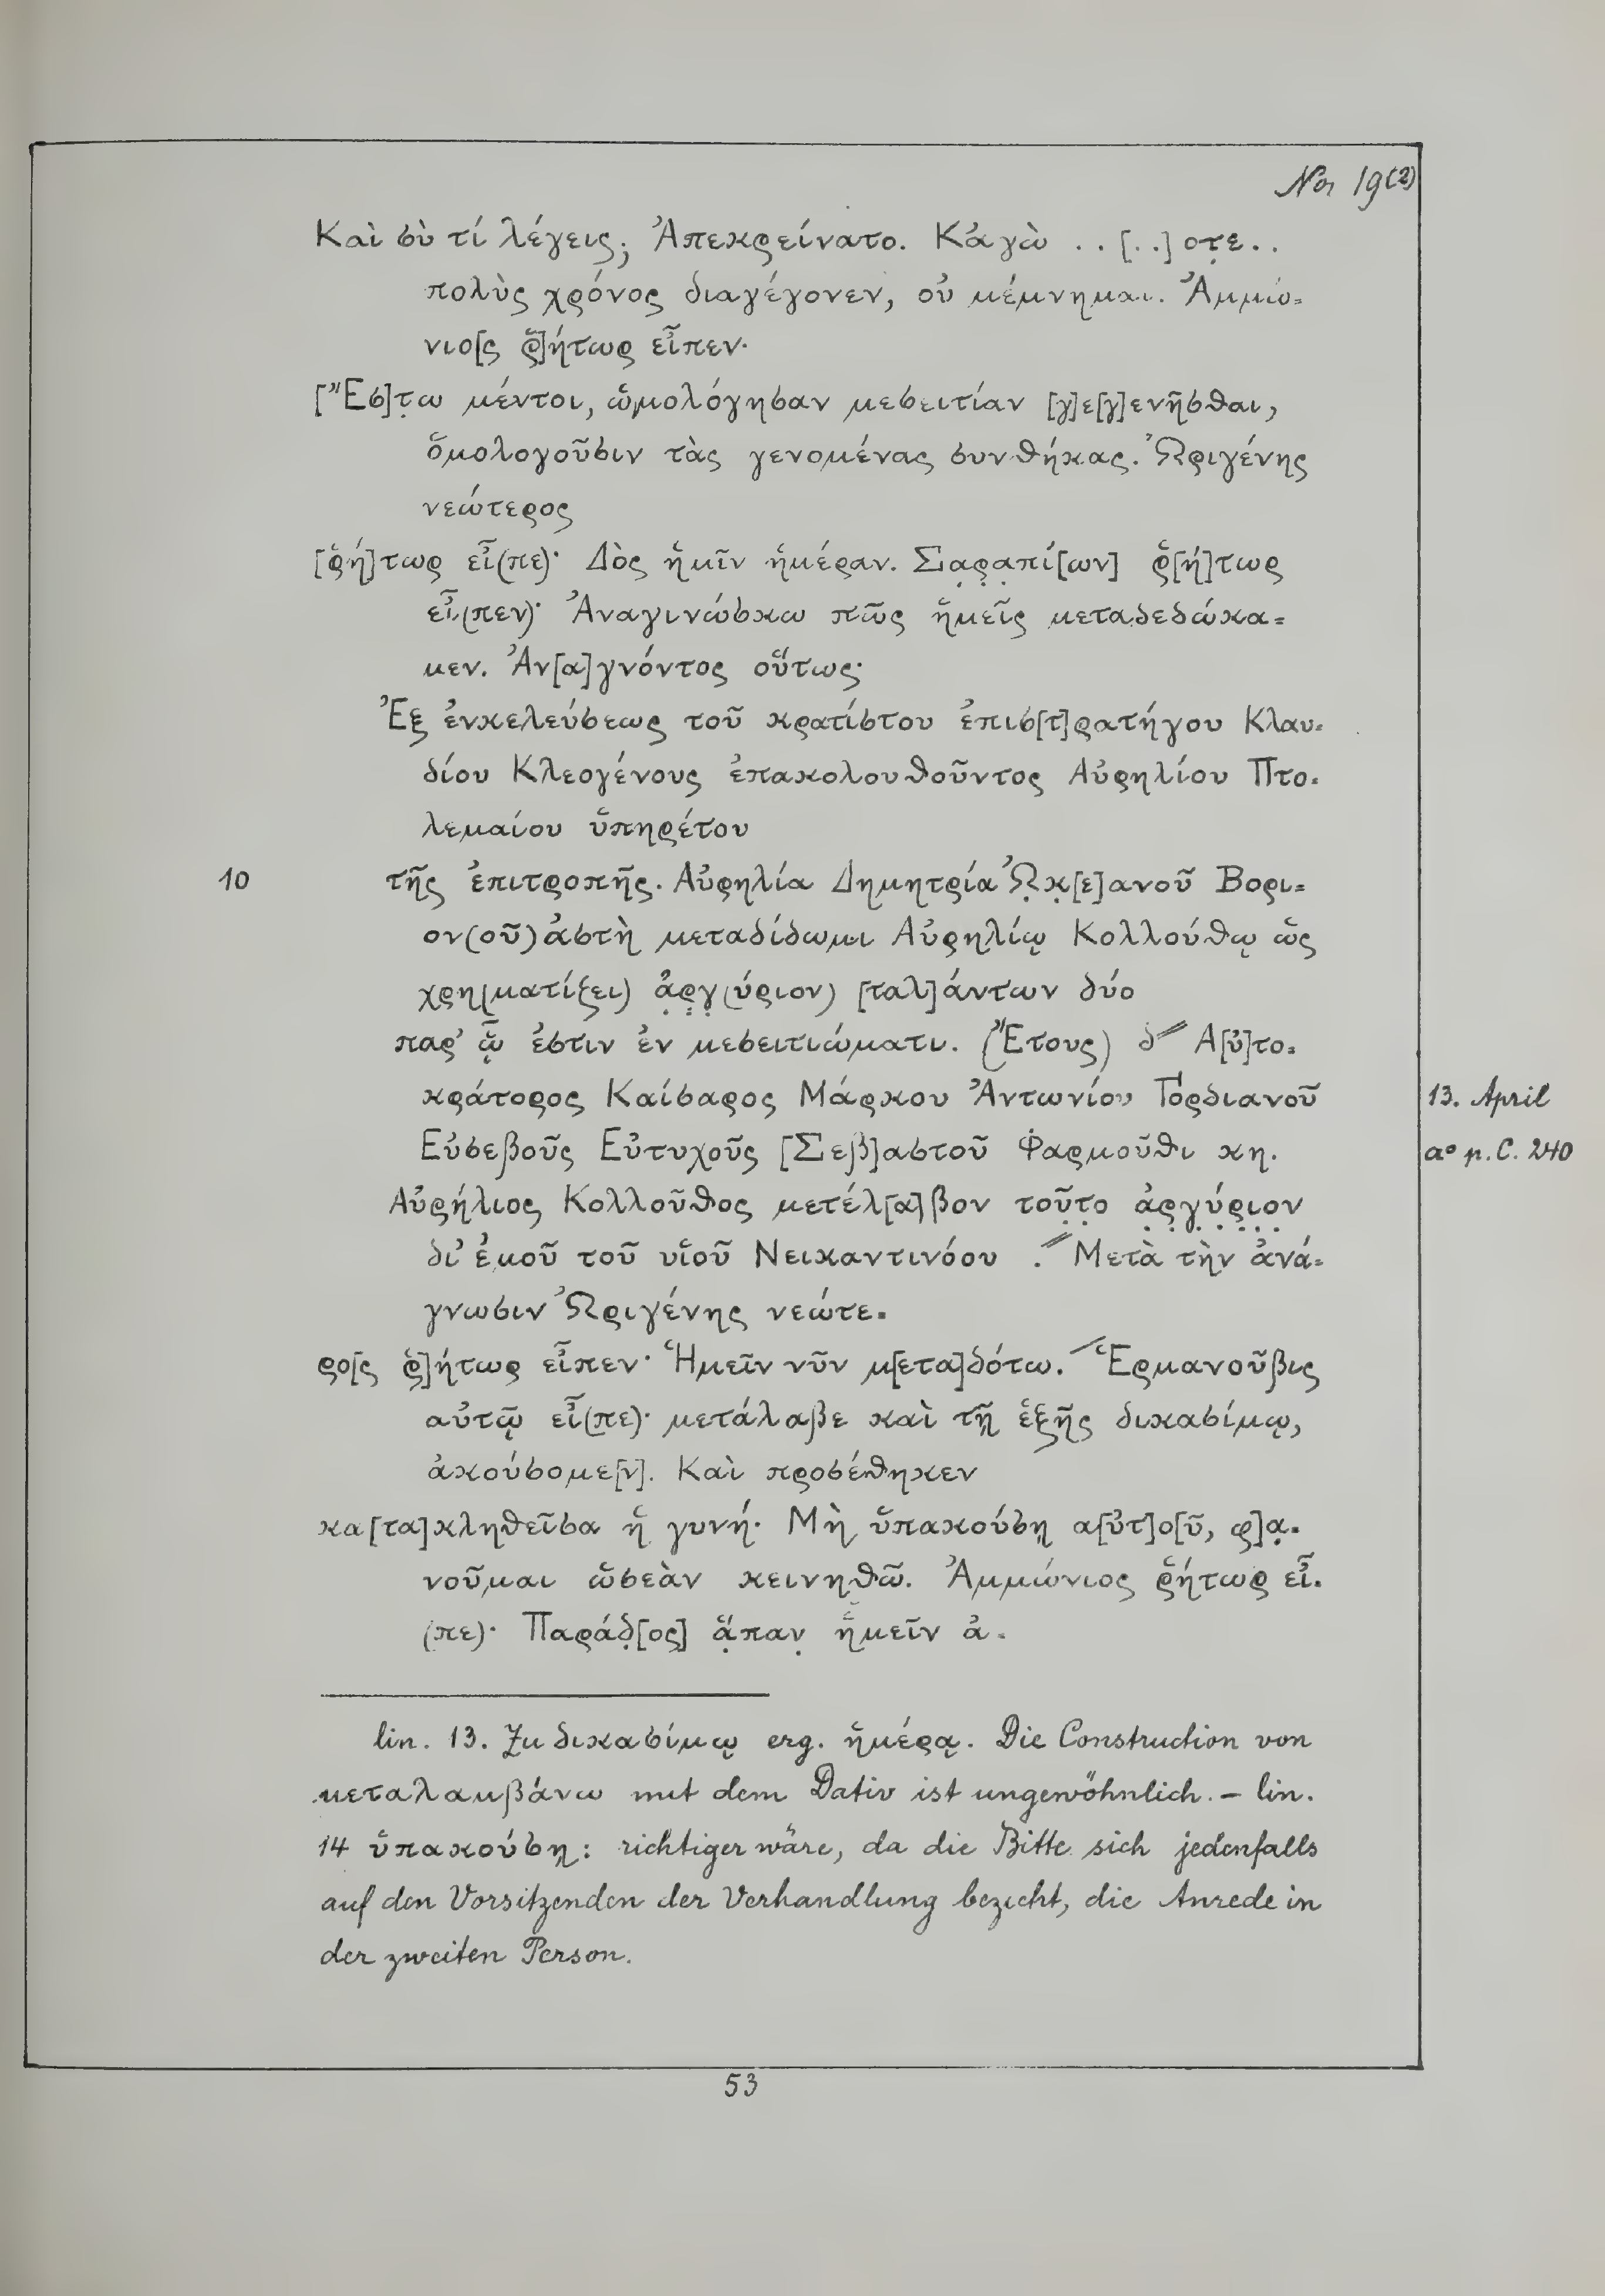 No 19(2)
Καὶ σὺ τί λέγεις; Ἀπεκρείνατο. Κἀγὼ . . [. .] οτ̣ε . .
πολὺς χρόνος διαγέγονεν, οὐ μέμνημαι. Ἀμμώ-
νιο[ς ῥ]ήτωρ εἶπεν·
[Ἔσ]τ̣ω μέντοι, ὡμολόγησαν μεσειτίαν [γ]ε[γ]ενῆσθαι,
ὁμολογοῦσιν τὰς γενομένας συνθήκας. Ὠριγένης
νεώτερος
[ῥή]τωρ εἶ(πε)· Δὸς ἡμῖν ἡμέραν. Σα̣ρα̣πί[ων] ῥ[ή]τωρ
εἶ(πεν)· Ἀναγινώσκω πῶς ἡμεῖς μεταδεδώκα-
μεν. Ἀν[α]γνόντος οὕτως·
Ἐξ ἐνκελεύσεως τοῦ κρατίστου ἐπισ[τ]ρατήγου Κλαυ-
δίου Κλεογένους ἐπακολουθοῦντος Αὐρηλίου Πτο-
λεμαίου ὑπηρέτου
10 τῆς ἐπιτροπῆς. Αὐρηλία Δημητρία Ὠ̣κ̣[ε]ανοῦ Βορι-
ον(οῦ) ἀστὴ μεταδίδωμι Αὐρηλίῳ Κολλούθῳ ὡς
χρη(ματίζει) ἀ̣ρ̣γ̣(ύριον) [ταλ]άντων δύο
παρ' ᾧ ἐστιν ἐν μεσειτιώματι. (Ἔτους) δ// Α[ὐ]το-
κράτορος Καίσαρος Μάρκου Ἀντωνίου Γορδιανοῦ
13. April
Εὐσεβοῦς Εὐτυχοῦς [Σεβ]αστοῦ Φαρμοῦθι κη.
a° p. C. 240
Αὐρήλιος Κολλοῦθος μετέλ[α]βον τοῦ̣τ̣ο ἀ̣ρ̣γ̣ύ̣ρ̣ι̣ο̣ν
δι' ἐμοῦ τοῦ υἱοῦ Νεικαντινόου . // Μετὰ τὴν ἀνά-
γνωσιν Ὠριγένης νεώτε-
ρο[ς ῥ]ήτωρ εἶπεν· Ἡμεῖν νῦν μ[ετα]δότω. / Ἑρμανοῦβις
αὐτῷ εἶ(πε)· μετάλαβε καὶ τῇ ἑξῆς δικασίμῳ,
ἀκούσομε[ν]. Καὶ προσέθηκεν
κα[τα]κληθεῖσα ἡ γυνή· Μὴ ὑπακούσῃ α[ὐτ]ο[ῦ, φ]α̣-
νοῦμαι ὡσεὰν κεινηθῶ. Ἀμμώνιος ῥήτωρ εἶ-
(πε)· Παράδ̣[ος] ἅ̣παν̣ ἡμεῖν ἀ-
lin. 13. Zu δικασίμῳ erg. ἡμέρᾳ. Die Construction von
μεταλαμβάνω mit dem Dativ ist ungewöhnlich. – lin.
14 ὑπακούσῃ: richtiger wäre, da die Bitte sich jedenfalls
auf den Vorsitzenden der Verhandlung bezieht, die Anrede in
der zweiten Person.
53